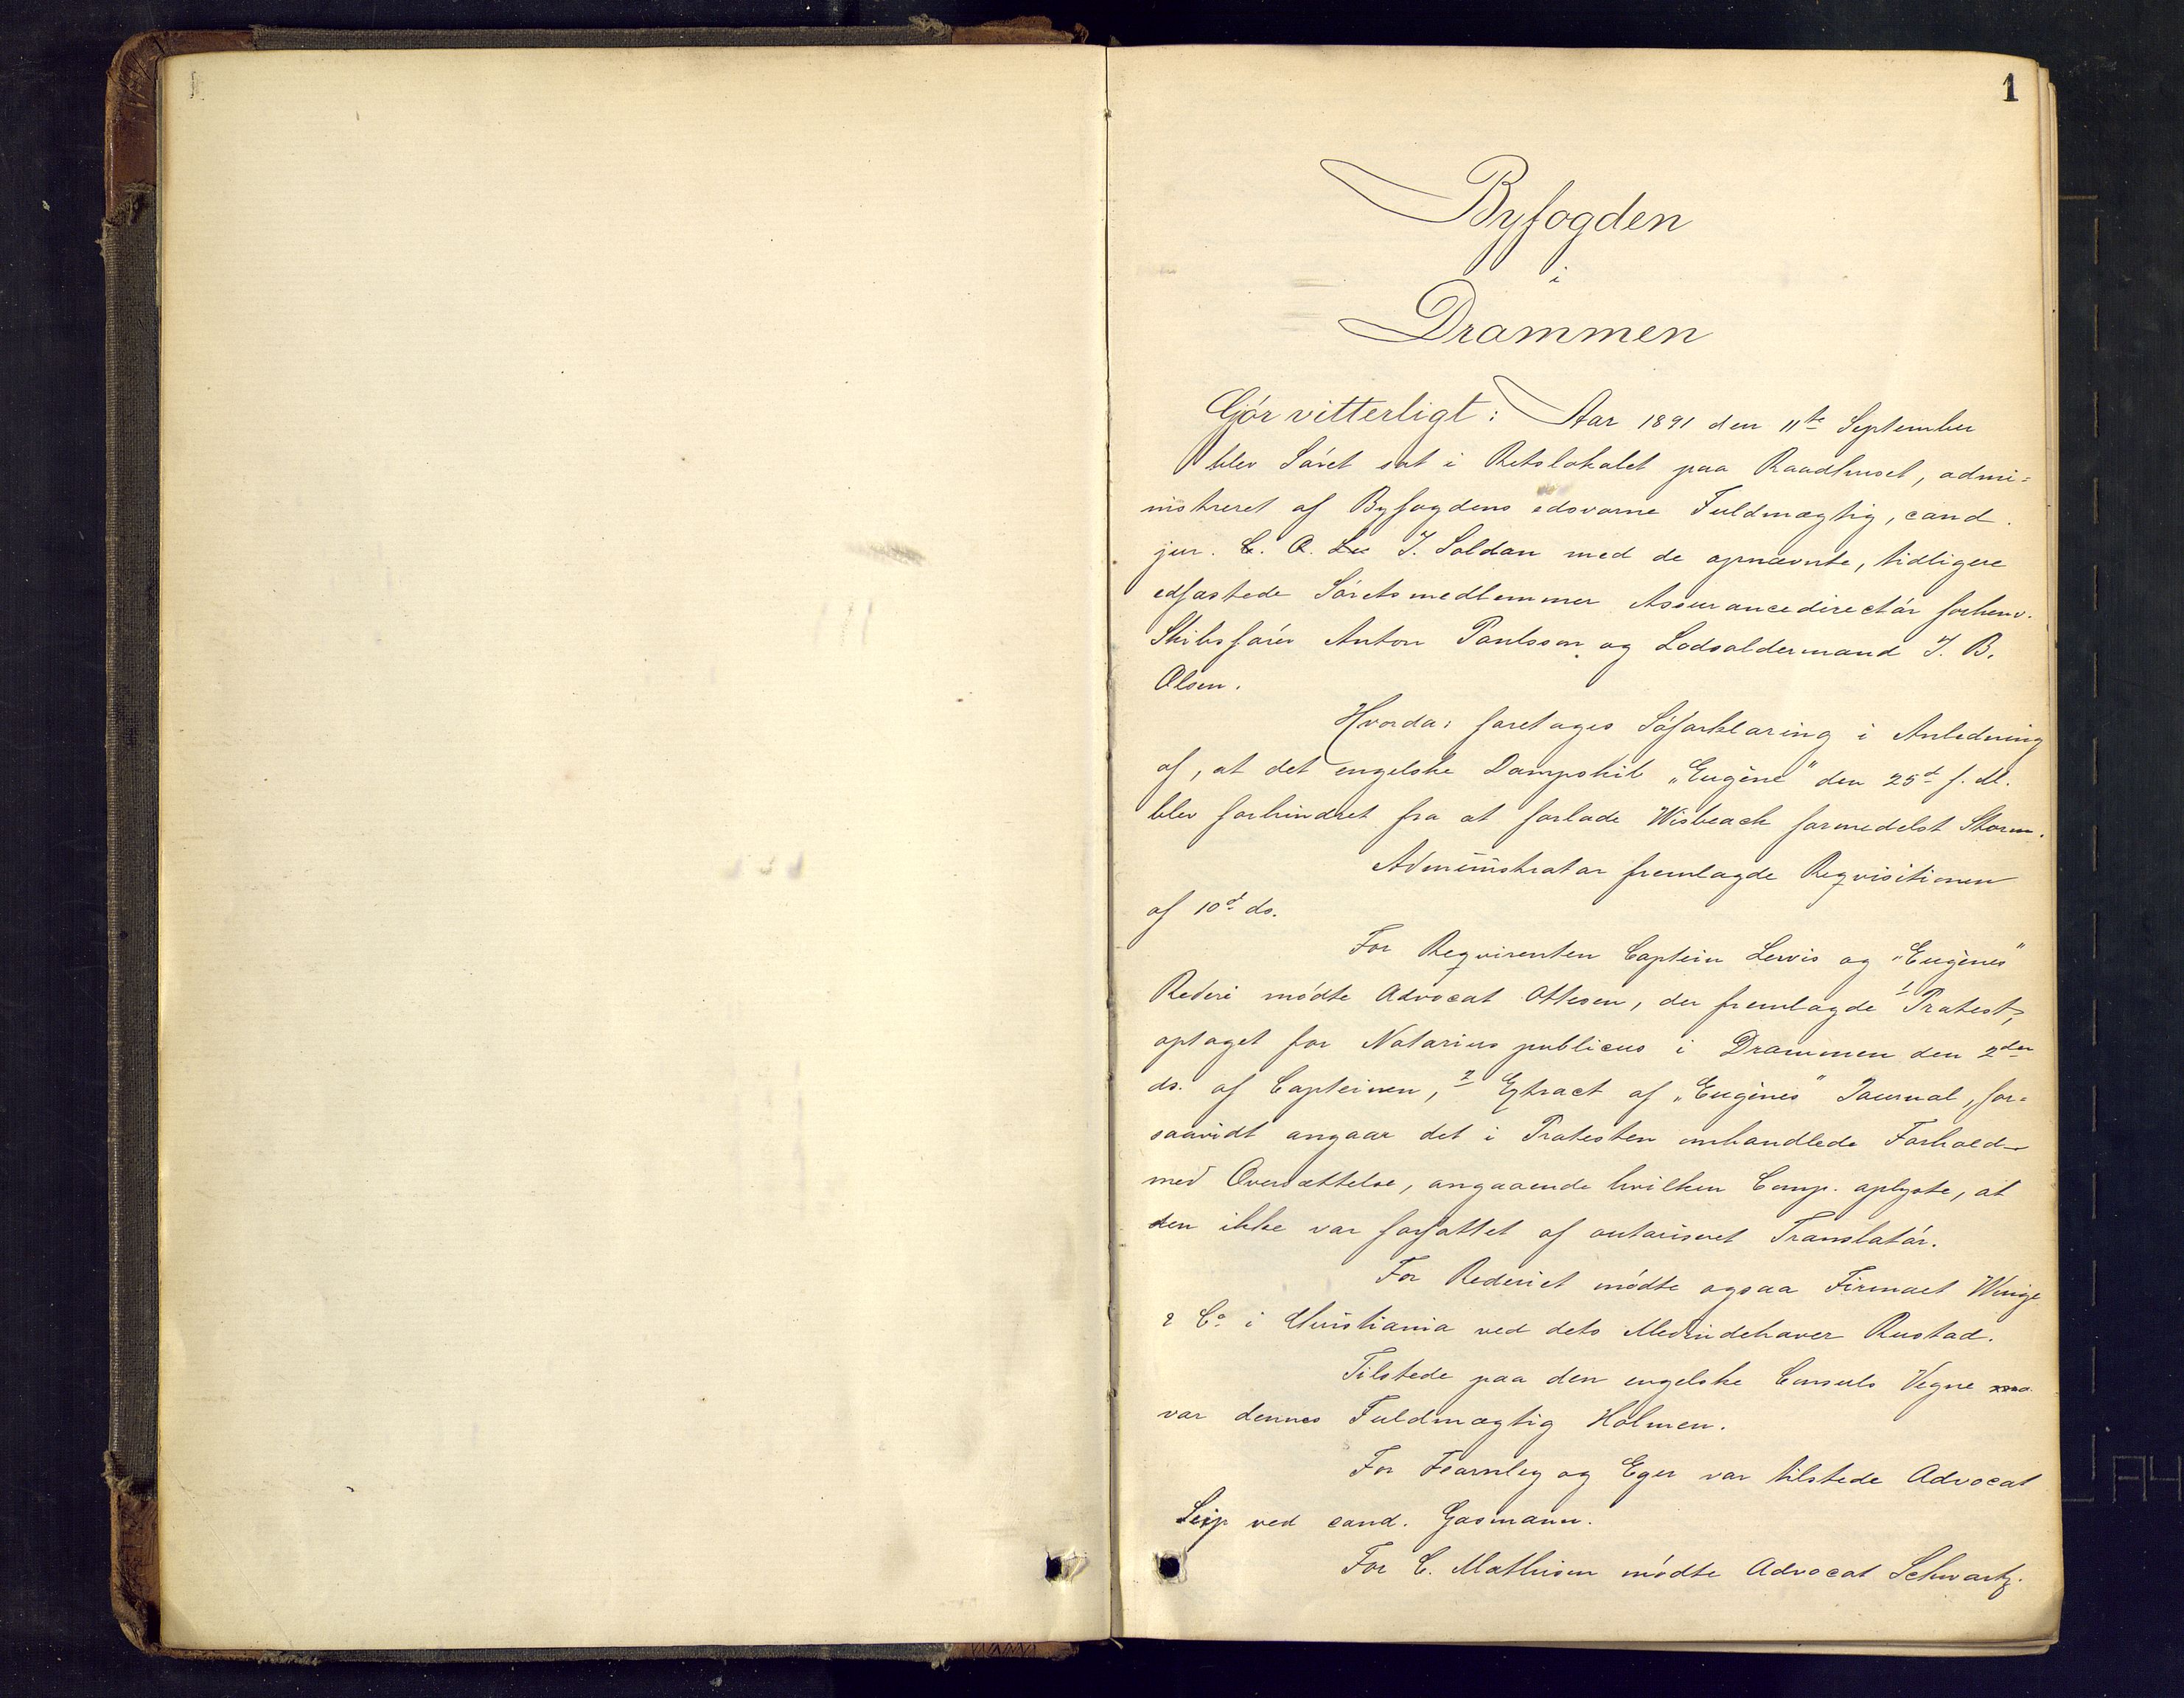 1
Byfogden
i
Drammen
Gjør vitterligt: Aar 1891 den 11te September
blev Søret sat i Retslokalet paa Raadhuset, admi=
nistreret af Byfogdens edsvorne Fuldmægtig, cand.
jur. C. A. J. Soldan med de opnævnte, tidligere
edfæstede Søretsmedlemmer Assurancedirectør forhenv.
Skibsfører Anton Paulsson og Lodsoldermand J. B.
Olsen.
Hvorda: foretages Søforklaring i Anledning
af, at det engelske Dampskib „Eugène" den 25d f. M.
blev forhindret fra at forlade Wisbeach formedelst Storm.
Administrator fremlagde Reqvisitionen
af 10d ds.
For Reqvirenten Captein Lewis og „Eugènes"
Rederi mødte Advocat Ottesen, der fremlagde 1 Protest,
optaget for Notarius publicus i Drammen den 2den
ds. af Capteinen, 2 Extract af „Eugènes" Journal, for=
saavidt angaar det i Protesten omhandlede Forhold
med Oversættelse, angaaende hvilken Comp. oplyste, at
den ikke var forfattet af autoriseret Translatør.
For Rederiet mødte ogsaa Firmaet Winge
& Co. i Christiania ved dets Medindehaver Rustad.
Tilstede paa den engelske Consuls Vegne
var dennes Fuldmægtig Holmen.
For Fearnley og Eger var tilstede Advocat
Seip ved cand. Gasmann.
For C. Mathisen mødte Advocat Schwartz.